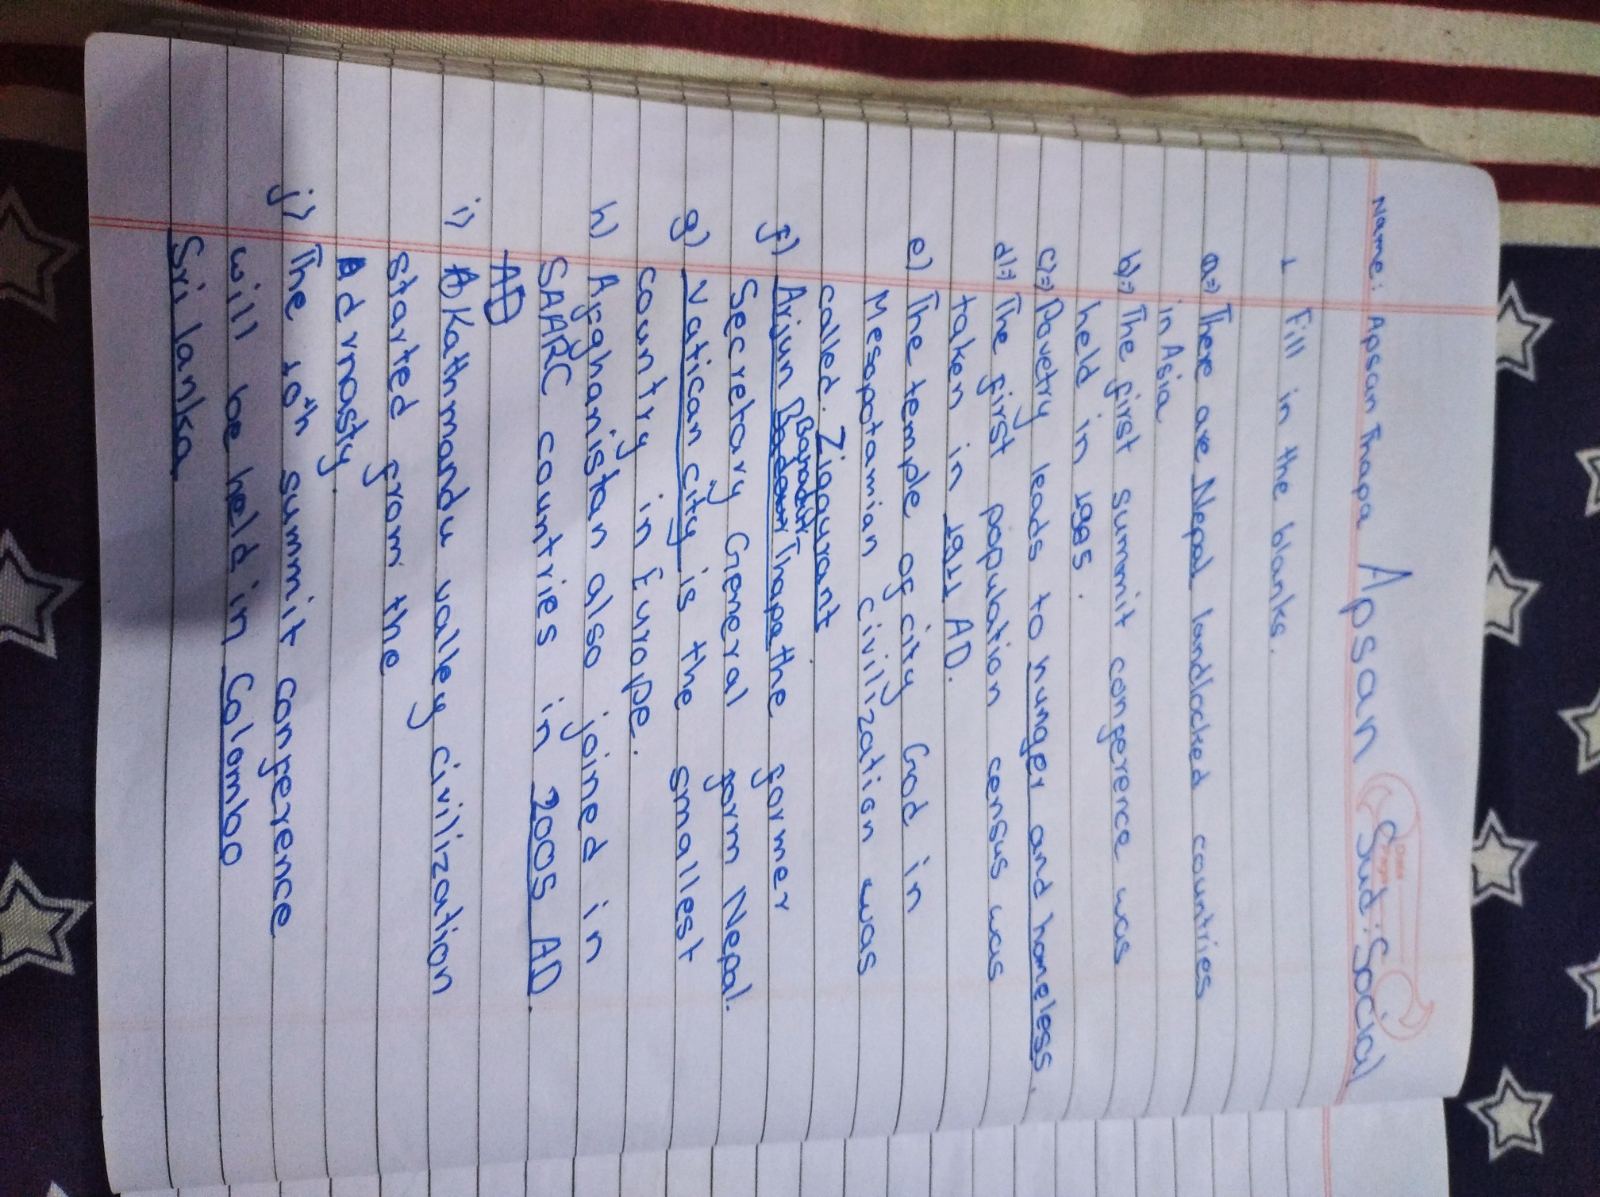 Name: Apsan Thapa Apsan Sud: Social
Date
Page
1 Fill in the blanks.
a⇒ There are Nepal landlocked countries
in Asia
b⇒ The first summit conference was
held in 1985.
c⇒ Povetry leads to hunger and homeless.
d⇒ The first population census was
taken in 1911 AD.
e) The temple of city God in
Mesopotamian civilization was
called. Ziaggurant
Bahadur
f) Arjun Thapa the former
Secretary General form Nepal.
g) Vatican city is the smallest
country in Europe.
h) Afghanistan also joined in
SAARC countries in 2005 AD.
AD
i) Kathmandu valley civilization
started from the
Adynasty.
j) The 10th summit conference
will be held in Colomboo
Sri lanka